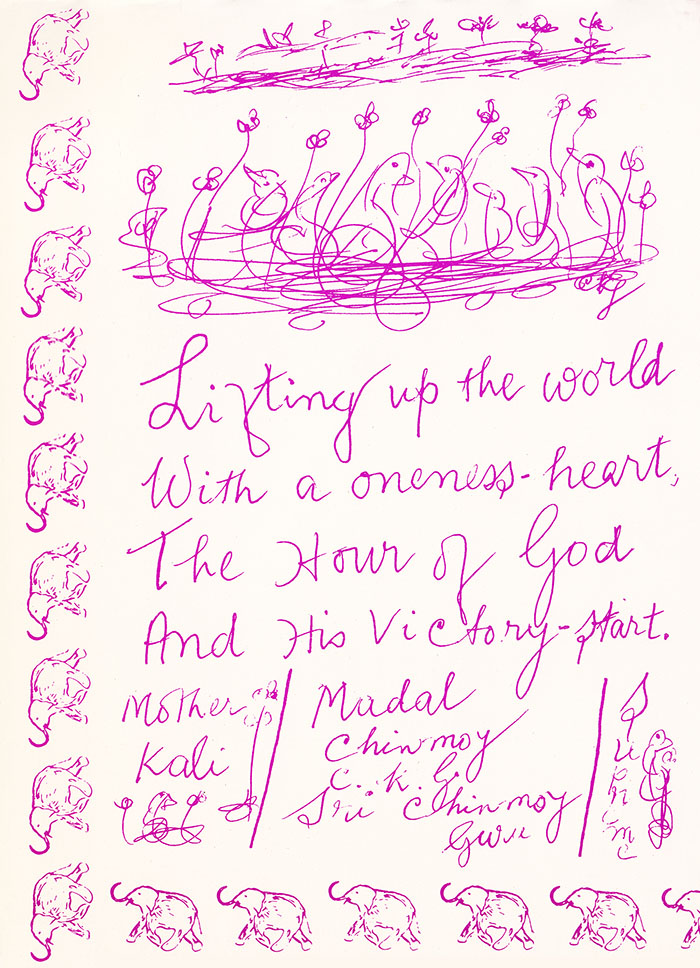 CKG
Lifting up the world
With a oneness-heart,
The Hour of God
And His Victory-start.
Mother
Kali
Madal
Chinmoy
C. K. G.
Sri Chinmoy
Guru
Supreme